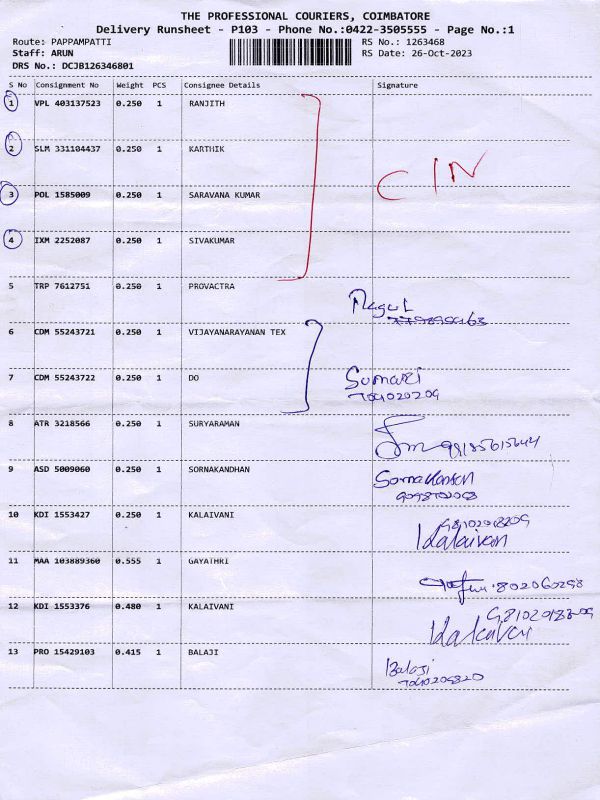 THE PROFESSIONAL COURIERS, COIMBATORE
Delivery Runsheet - P103 - Phone No.:0422-3505555 - Page No.:1
Route: PAPPAMPATTI RS No.: 1263468
Staff: ARUN RS Date: 26-Oct-2023
DRS No.: DCJB126346801
S No Consignment No Weight PCS Consignee Details Signature
1 VPL 403137523 0.250 1 RANJITH
2 SLM 331104437 0.250 1 KARTHIK
CIN
3 POL 1585009 0.250 1 SARAVANA KUMAR
4 IXM 2252087 0.250 1 SIVAKUMAR
5 TRP 7612751 0.250 1 PROVACTRA
6 CDM 55243721 0.250 1 VIJAYANARAYANAN TEX
7 CDM 55243722 0.250 1 DO
8 ATR 3218566 0.250 1 SURYARAMAN
9 ASD 5009060 0.250 1 SORNAKANDHAN
10 KDI 1553427 0.250 1 KALAIVANI
11 MAA 103889360 0.555 1 GAYATHRI
12 KDI 1553376 0.480 1 KALAIVANI
13 PRO 15429103 0.415 1 BALAJI
Balaji